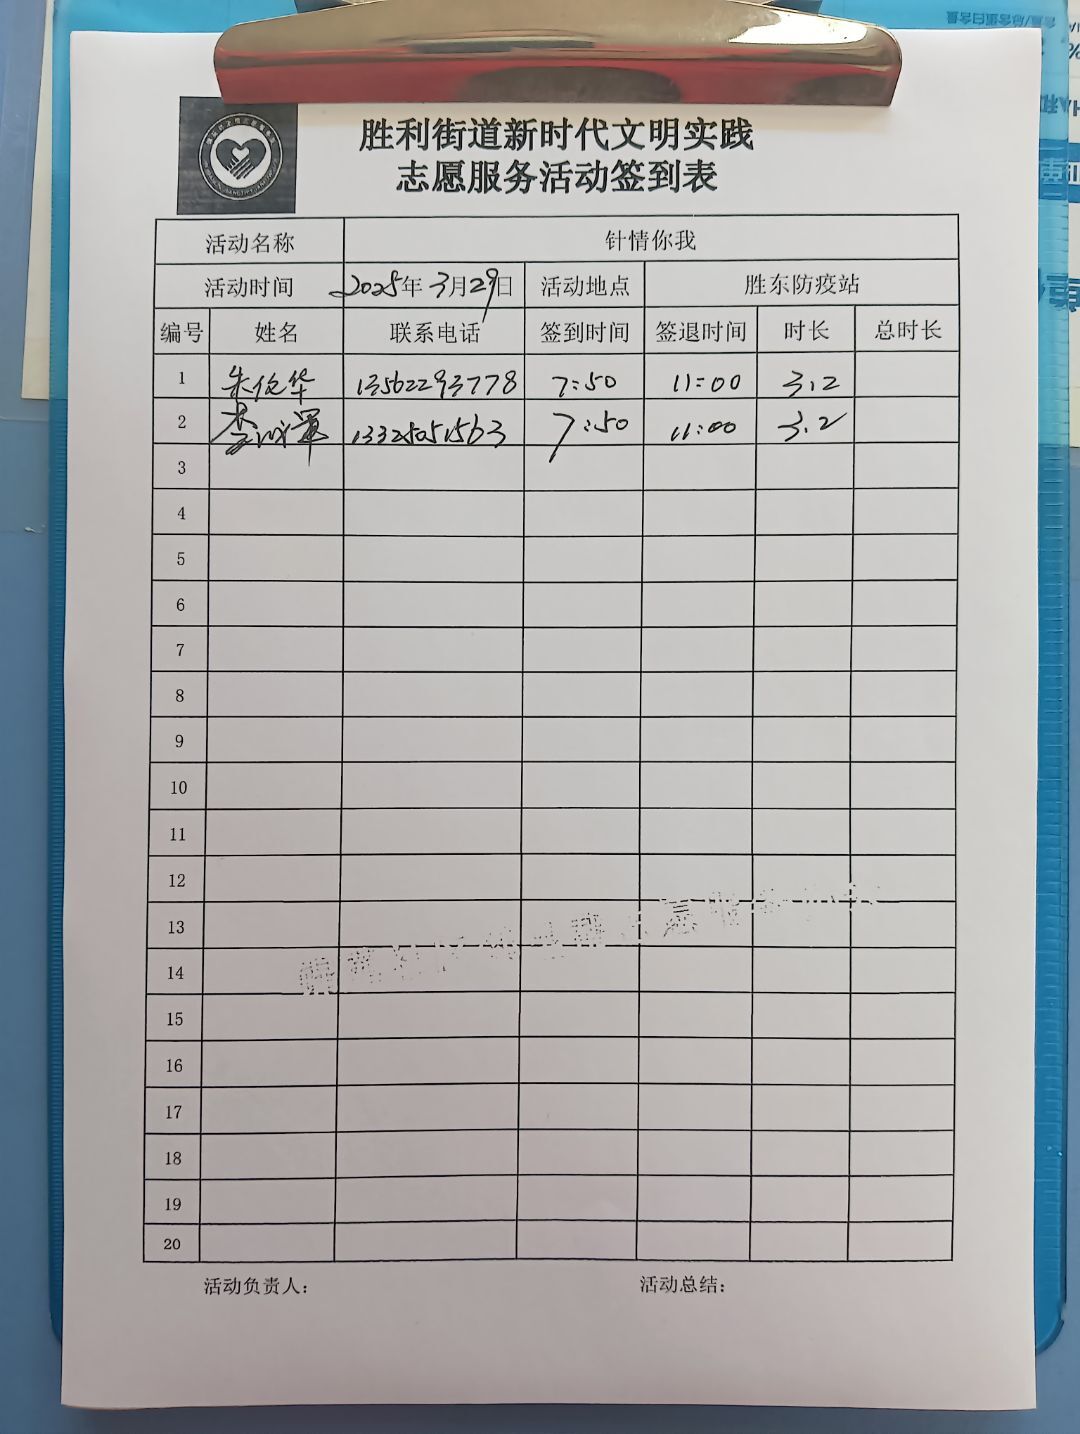 胜利街道新时代文明实践
志愿服务活动签到表
活动名称 针情你我
活动时间 2025年3月29日 活动地点 胜东防疫站
编号 姓名 联系电话 签到时间 签退时间 时长 总时长
1 朱伦华 13562293778 7:50 11:00 3.2
2 李 13325051563 7:50 11:00 3.2
3
4
5
6
7
8
9
10
11
12
13
14
15
16
17
18
19
20
活动负责人： 活动总结：